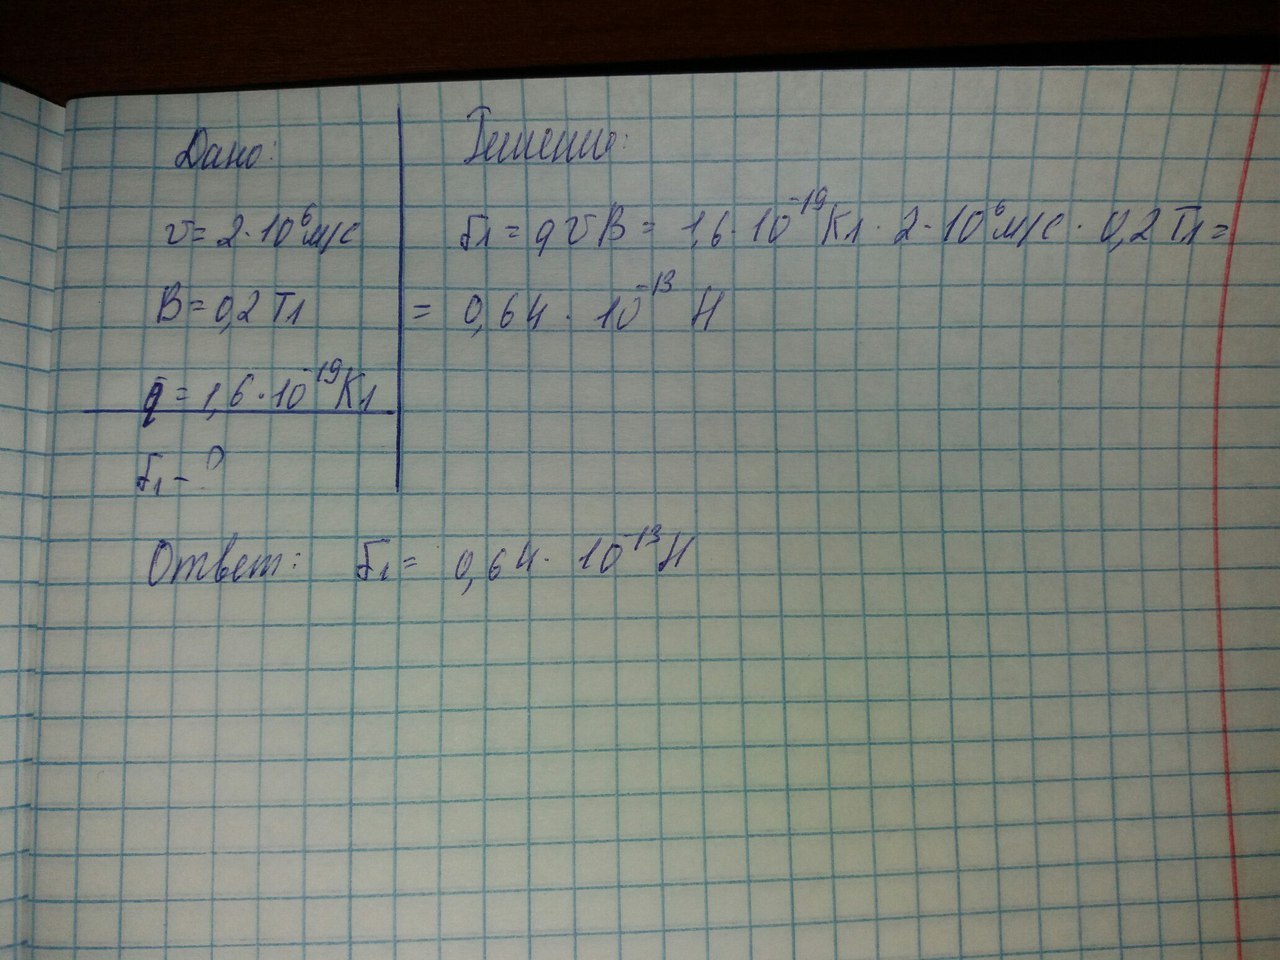 Дано:
v = 2·10⁶ м/с
B = 0,2 Тл
q = 1,6·10⁻¹⁹ Кл
Fл - ?
Решение:
Fл = qvB = 1,6·10⁻¹⁹ Кл · 2·10⁶ м/с · 0,2 Тл =
= 0,64 · 10⁻¹³ Н
Ответ: Fл = 0,64 · 10⁻¹³ Н